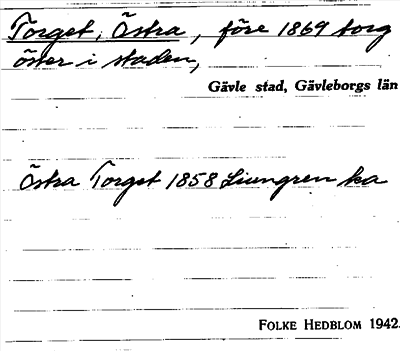 Torget, Östra, före 1869 torg
öster i staden,
Gävle stad, Gävleborgs län
Östra Torget 1858 Ljungren ka
FOLKE HEDBLOM 1942.